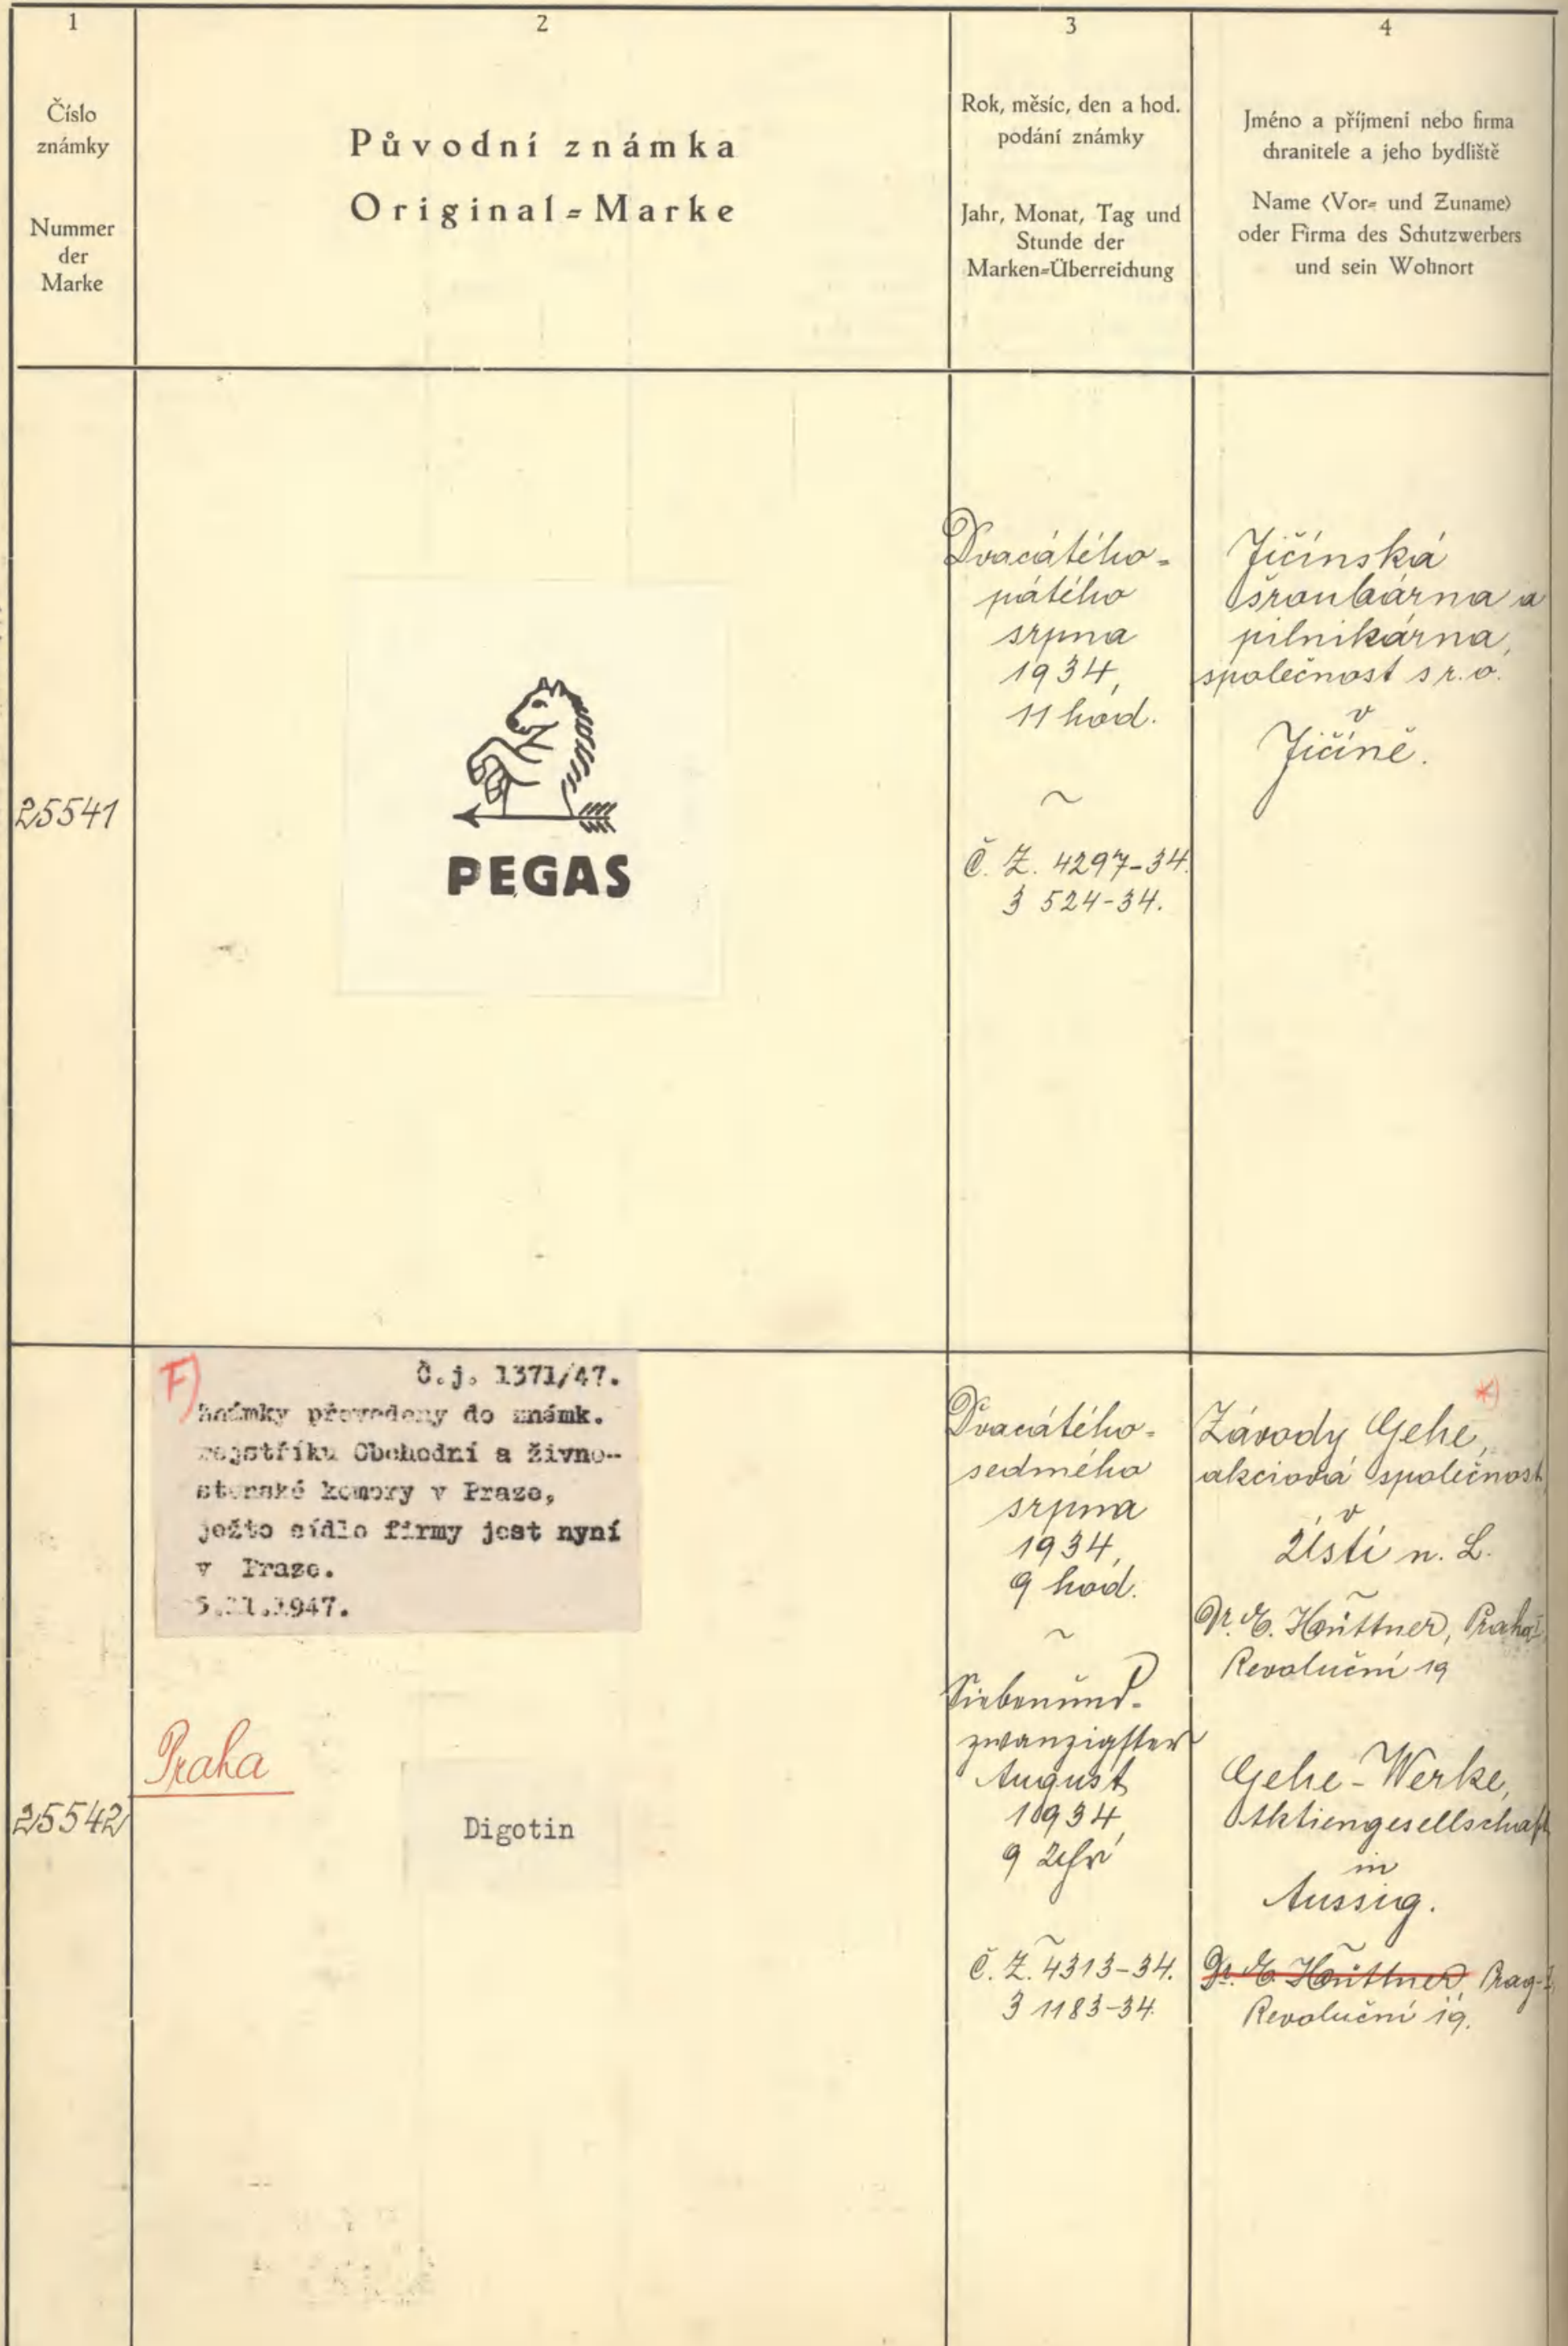 1
Číslo
známky
Nummer
der
Marke
2
Původní známka
Original=Marke
3
Rok, měsíc, den a hod.
podání známky
Jahr, Monat, Tag und
Stunde der
Marken=Überreichung
4
Jméno a příjmení nebo firma
chranitele a jeho bydliště
Name (Vor= und Zuname)
oder Firma des Schutzwerbers
und sein Wohnort
25541
PEGAS
Dvacátého-
pátého
srpna
1934,
11 hod.
~
Č. Ž. 4297-34.
3 524-34.
Jičínská
šroubárna a
pilnikárna,
společnost s r. o.
v
Jičíně.
25542
F)
Č.j. 1371/47.
Známky převedeny do známk.
rejstříku Obchodní a živno-
stenské komory v Praze,
ježto sídlo firmy jest nyní
v Praze.
5.11.1947.
Praha
Digotin
Dvacátého-
sedmého
srpna
1934,
9 hod.
~
Siebenund-
zwanzigster
August
1934,
9 Uhr
~
Č. Ž. 4313-34.
3 1183-34.
*)
Závody Gehe,
akciová společnost
v
Ústí n. L.
~
Dr. E. Hüttner, Praha I,
Revoluční 19
Gehe-Werke,
Aktiengesellschaft
in
Aussig.
~
Dr. E. Hüttner, Prag-I,
Revoluční 19.